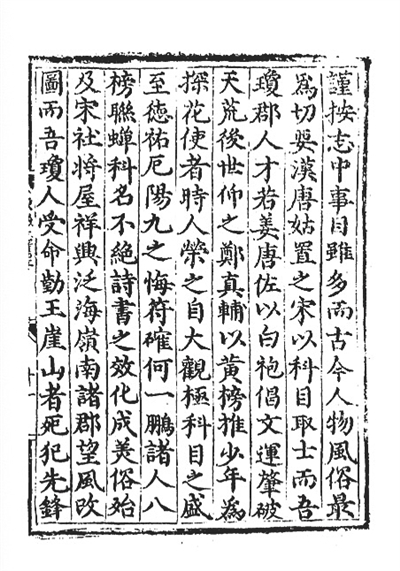 謹按志中事目雖多而古今人物風俗最
爲切要漢唐姑置之宋以科目取士而吾
瓊郡人才若姜唐佐以白袍倡文運肇破
天荒後世仰之鄭真輔以黃榜推少年爲
探花使者時人榮之自大觀極科目之盛
至德祐厄陽九之悔符確何一鵬諸人八
榜聯蟬科名不絕詩書之效化成美俗始
及宋社將屋祥興泛海嶺南諸郡望風改
圖而吾瓊人受命勤王崖山者死犯先鋒